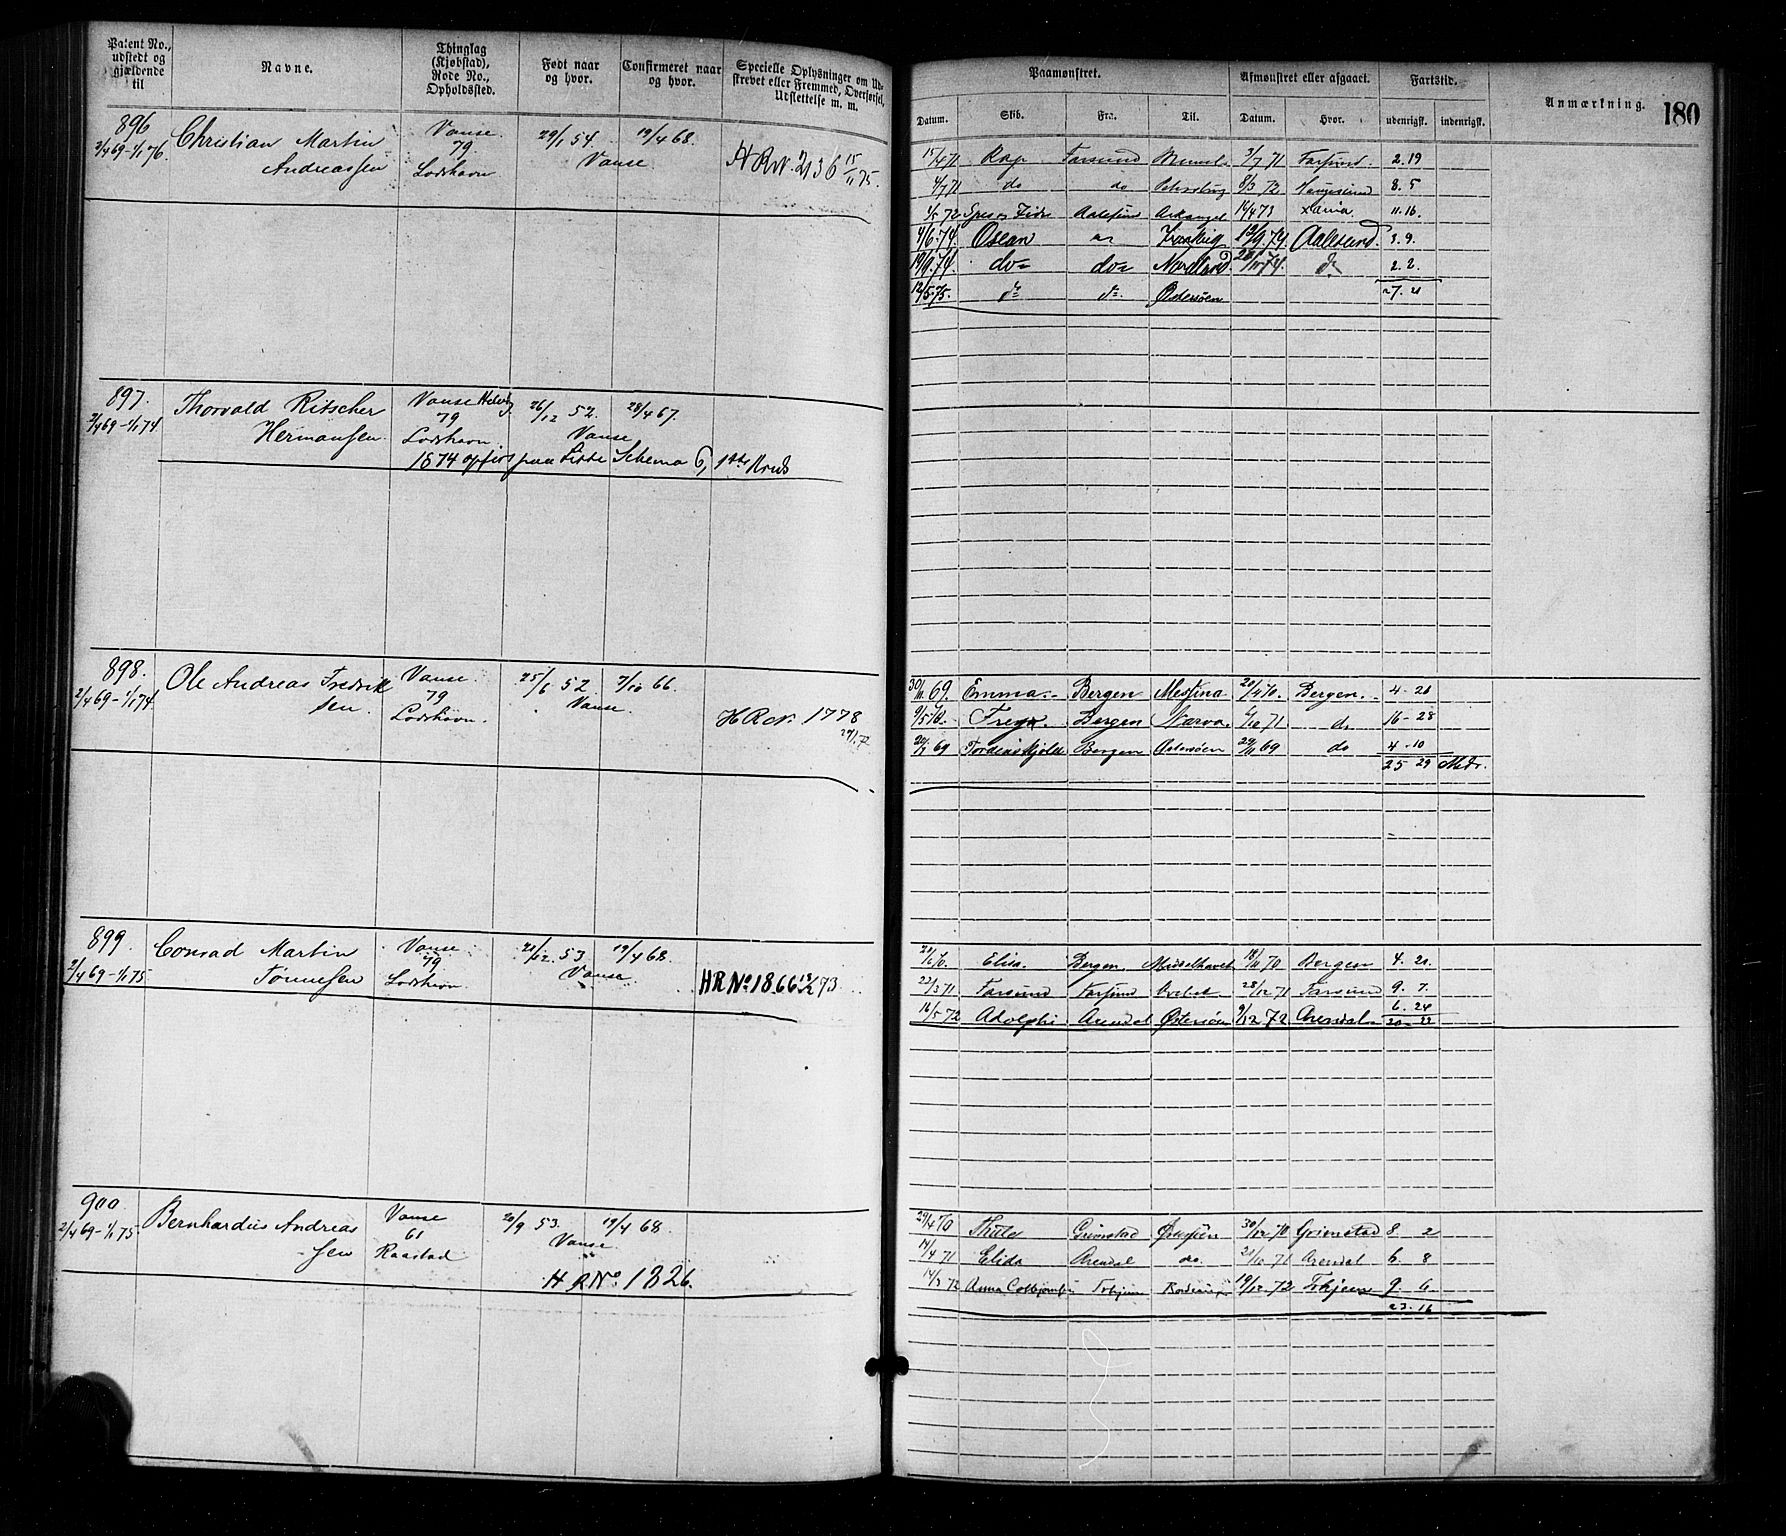 Patent No., udstedt og gjældende til
Navne.
Thinglag (Kjøbstad), Rode No., Opholdssted.
Født naar og hvor.
Confirmeret naar og hvor.
Specielle Oplysninger om Udskrevet eller Fremmed, Overførsel, Udslettelse m. m.
Paamønstret.
Afmønstret eller afgaaet.
Fartstid.
Anmærkning.
180
Datum.
Skib.
Fra.
Til.
Datum.
Hvor.
udenrigsk.
indenrigsk.
896
2/4 69-1/1 76.
Christian Martin
Andreassen
Vanse.
79.
Lodshavn
29/1 54.
19/4 68.
Vanse
HRN. 2136 15/11 75.
15/4 71 Farsund 3/7 71 Farsund. 2.19
4/7 71 do do 8/3 72 Haugesund 8.5
Aalesund Arkangel 11.16.
4/6.74. Aalesund. 3.9.
19/9.74. do= do= do 2.2.
12/5.75. do do Østersøen 27.21
897.
2/4 69-1/1 74.
Thorvald Ritscher
Hermansen.
Vanse
79
Lodshavn.
26/12 52.
28/4 67.
Vanse
1874 opført paa Schema 6, 1ste
898.
2/4 69-1/1 74
Ole Andreas Fredrik
sen.
Vanse.
79
Lodshavn.
25/6 52
7/10 66.
Vanse.
HRN. 1778
30/11 69. Emma. Bergen Messina 20/4 70. Bergen. 4-20
9/5 70. Freya. Bergen Narva. 6/10 71 do 16-28
69 Tordenskjold Bergen Østersøen 29/11 69 do 4-10
25 29 Mdr.
899.
2/4 69-1/1 75
Conrad Martin
Tønnesen
Vanse
79
Lodshavn
21/12. 53
19/4 68.
Vanse.
HR No. 1866 13/2 73.
Elisa. Bergen. Middelhavet 18/11 70 Bergen 4.20.
23/3 71 Farsund Farsund 28/12 71 Farsund 9.7.
16/5 72 Adolphi Arendal Østersøen 9/12 72 Arendal 6.24
20-22
900
2/4 69-1/1 75.
Bernhardus Andreas
sen
Vanse
61
Raastad
20/9 53.
19/4 68
Vanse
HR No. 1826.
29/4 70 Grimstad Østersøen 30/12 70 Grimstad 8 2
14/4 71 Elida Arendal do. 21/10 71 Arendal 6. 8
14/3 72 Anna 19/12. 72 9. 6
23.16